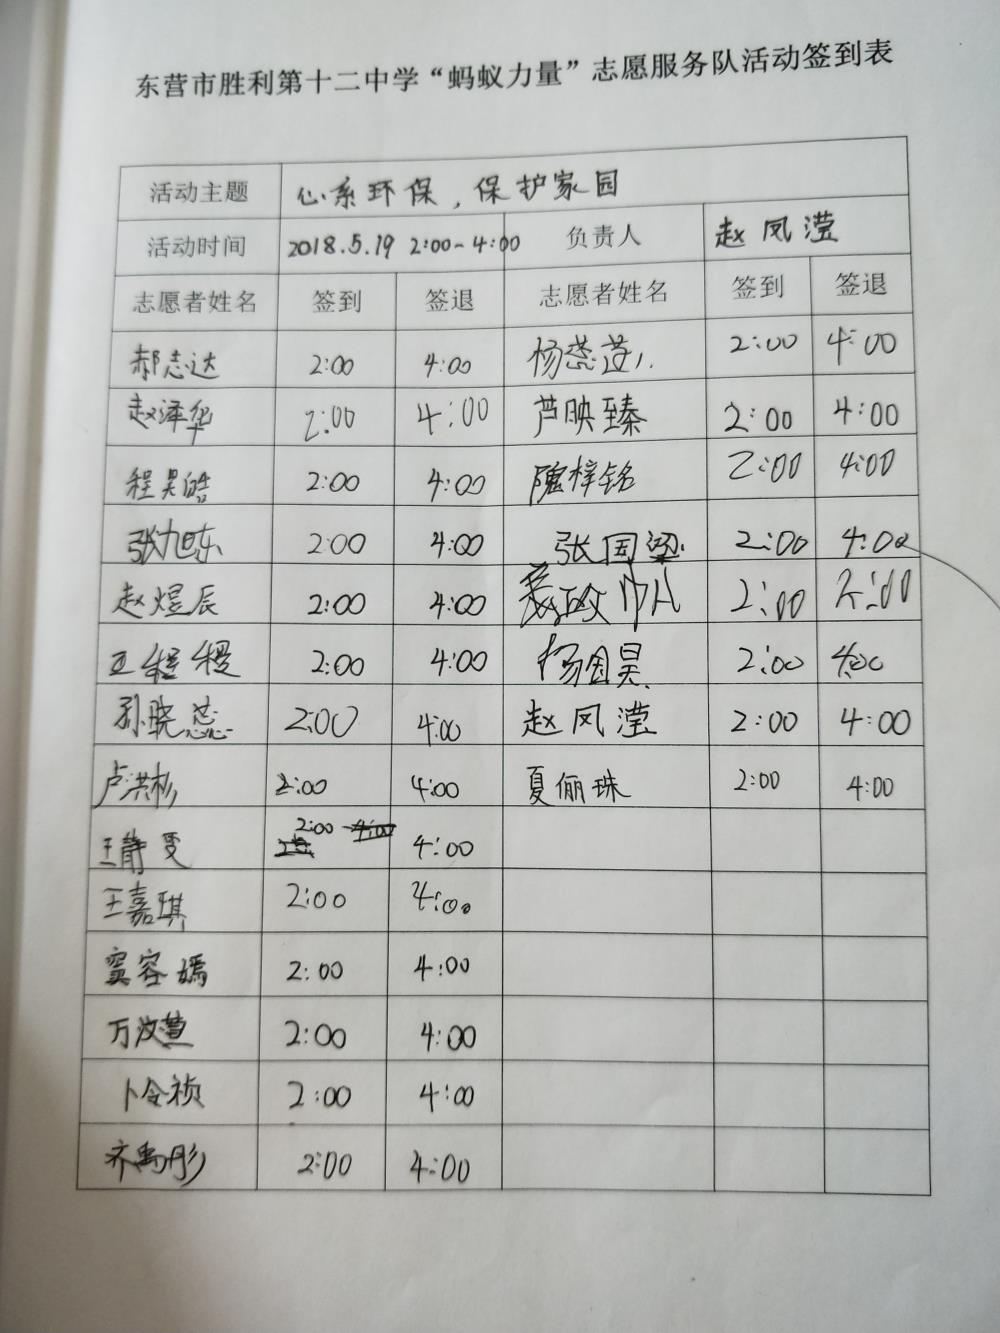 东营市胜利第十二中学“蚂蚁力量”志愿服务队活动签到表
活动主题 心系环保，保护家园
活动时间 2018.5.19 2:00-4:00 负责人 赵凤滢
志愿者姓名 签到 签退 志愿者姓名 签到 签退
郝志达 2:00 4:00 杨蕊 2:00 4:00
赵泽华 2:00 4:00 芦映臻 2:00 4:00
程昊皓 2:00 4:00 隗梓铭 2:00 4:00
张旭东 2:00 4:00 张国梁 2:00 4:00
赵煜辰 2:00 4:00 2:00
王程稷 2:00 4:00 杨国昊 2:00 4:00
孙晓蕊 2:00 4:00 赵凤滢 2:00 4:00
卢洪杉 2:00 4:00 夏俪珠 2:00 4:00
王静雯 2:00 4:00
王嘉琪 2:00 4:00
窦容嫣 2:00 4:00
万汶萱 2:00 4:00
卜令祯 2:00 4:00
齐禹彤 2:00 4:00